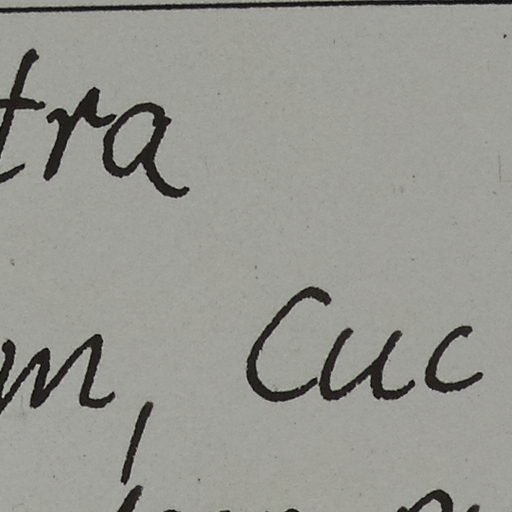 tra
m, Cuc